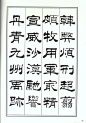 韓弊煩刑起翦
頗牧用軍最精
宣威沙漠馳譽
丹青九州禹跡